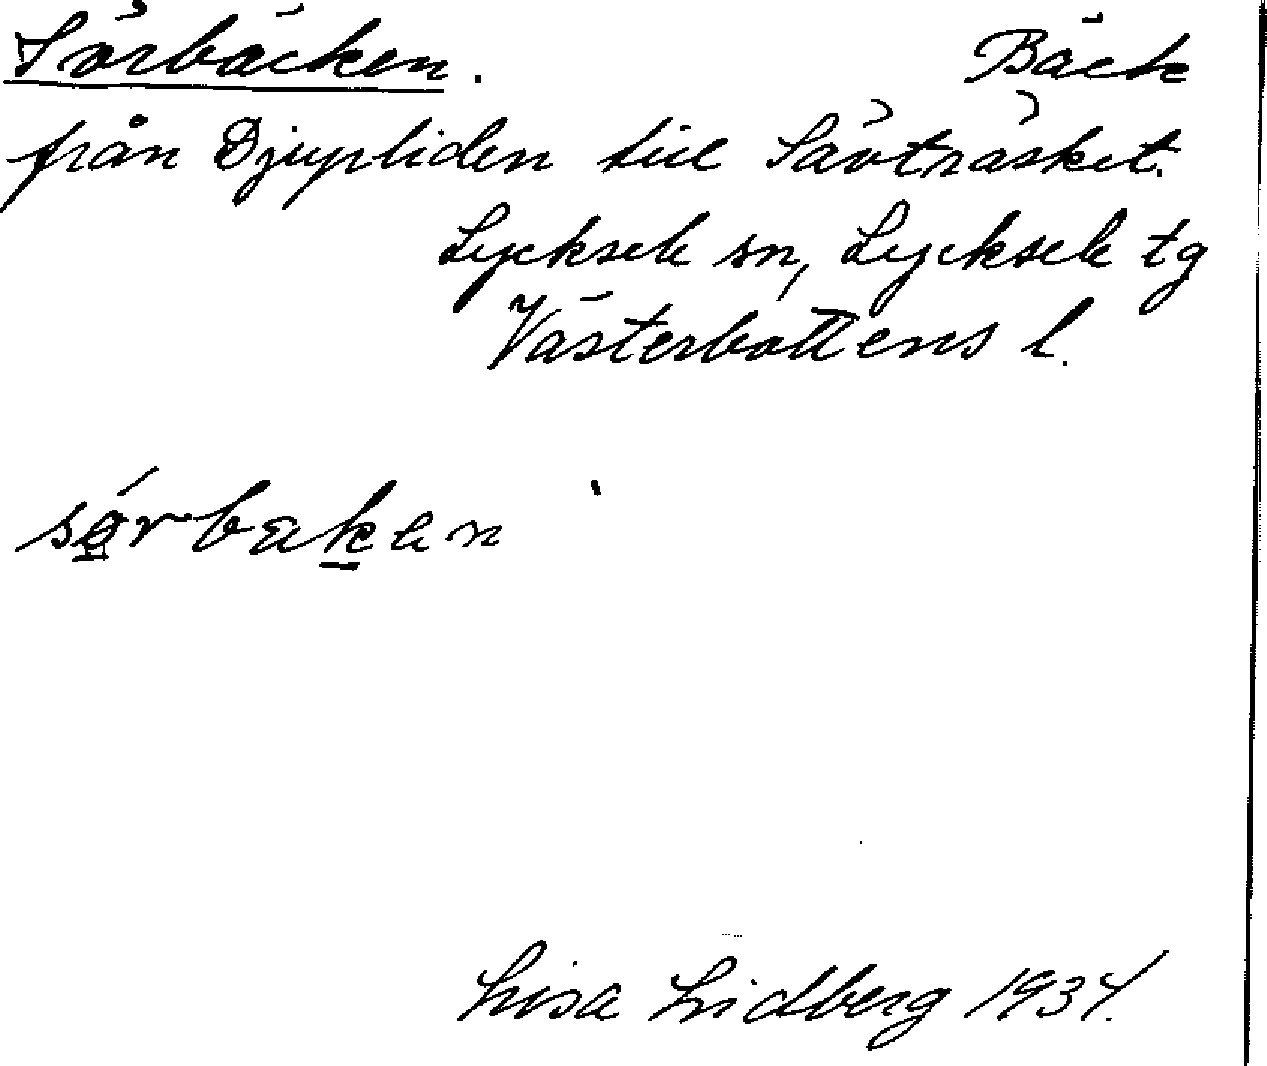 Sörbäcken. Bäck
från Djupliden till Sävträsket.
Lycksele sn, Lycksele tg
Västerbottens l.
sǿrbäken
Lisa Lidberg 1934.